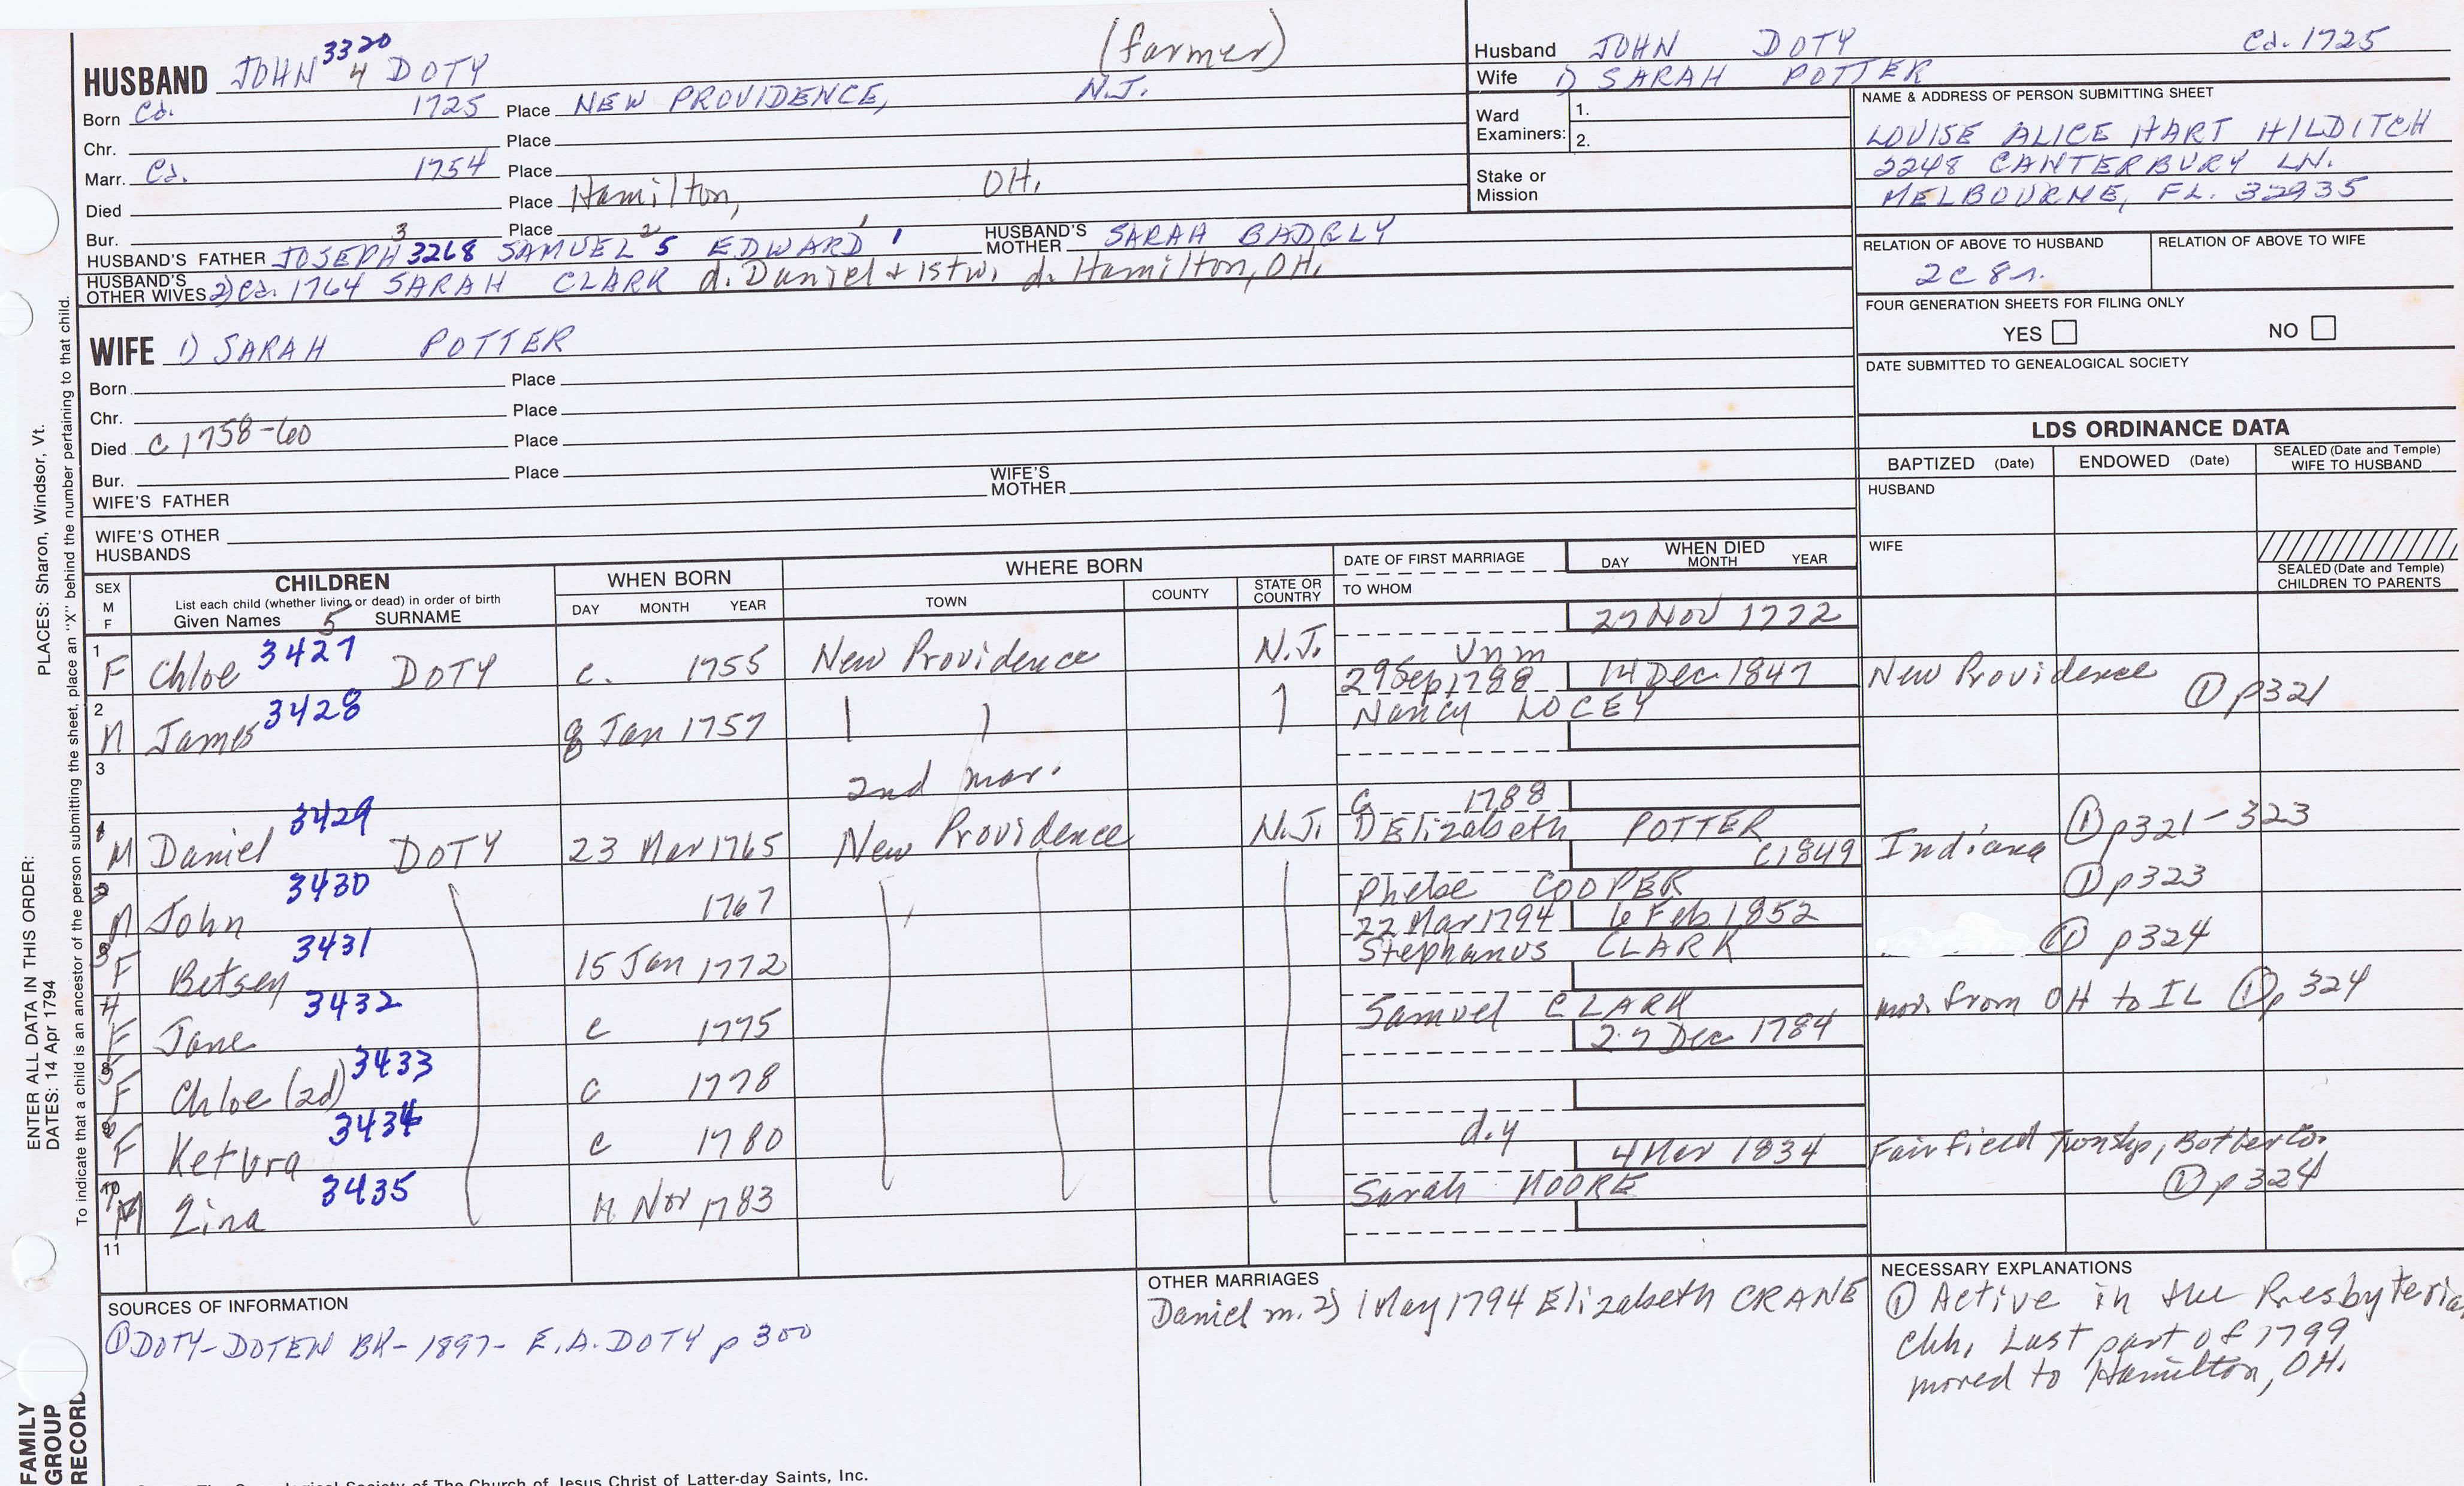 (farmer)
HUSBAND JOHN 3320 4 DOTY
Born Ca. 1725 Place NEW PROVIDENCE, N.J.
Chr. Place
Marr. Ca. 1754 Place
Died Place Hamilton, OH.
Bur. Place
HUSBAND'S FATHER JOSEPH 3 3268 SAMUEL 2 5 EDWARD 1 1 HUSBAND'S MOTHER SARAH BADGLY
HUSBAND'S OTHER WIVES 2) Ca. 1764 SARAH CLARK d. Daniel & 1st w. d. Hamilton, OH.
WIFE 1) SARAH POTTER
Born Place
Chr. Place
Died c 1758-60 Place
Bur. Place
WIFE'S FATHER WIFE'S MOTHER
WIFE'S OTHER HUSBANDS
Husband JOHN DOTY Ca. 1725
Wife 1) SARAH POTTER
Ward Examiners: 1.
2.
Stake or Mission
NAME & ADDRESS OF PERSON SUBMITTING SHEET
LOUISE ALICE HART HILDITCH
2248 CANTERBURY LN.
MELBOURNE, FL. 32935
RELATION OF ABOVE TO HUSBAND RELATION OF ABOVE TO WIFE
2c 8r.
FOUR GENERATION SHEETS FOR FILING ONLY
YES NO
DATE SUBMITTED TO GENEALOGICAL SOCIETY
LDS ORDINANCE DATA
BAPTIZED (Date) ENDOWED (Date) SEALED (Date and Temple) WIFE TO HUSBAND
HUSBAND
WIFE
SEALED (Date and Temple) CHILDREN TO PARENTS
SEX M F
CHILDREN
List each child (whether living or dead) in order of birth
Given Names 5 SURNAME
WHEN BORN
DAY MONTH YEAR
WHERE BORN
TOWN COUNTY STATE OR COUNTRY
DATE OF FIRST MARRIAGE
TO WHOM
WHEN DIED
DAY MONTH YEAR
1 F Chloe 3427 DOTY c. 1755 New Providence N.J. unm 27 Nov 1772
2 M James 3428 8 Jan 1757 29 Sep 1788 Nancy LOCEY 14 Dec. 1847 New Providence ① p321
3 2nd mar.
1 M Daniel 3429 DOTY 23 Mar 1765 New Providence N.J. c 1788 1) Elizabeth POTTER ① p321-323
2 M John 3430 1767 Phebe COOPER c 1849 Indiana ① p323
3 F Betsey 3431 15 Jan 1772 22 Mar 1794 Stephanus CLARK 6 Feb. 1852 ① p324
4 F Jane 3432 c 1775 Samuel CLARK mov. from OH to IL ① p324
5 F Chloe (2d) 3433 c 1778 27 Dec 1784
6 F Ketura 3434 c 1780 d.y
7 M Zina 3435 Nov 1783 Sarah MOORE 4 Mar 1834 Fairfield Twnshp, Butler Co. ① p324
11
SOURCES OF INFORMATION
① DOTY-DOTEN BK-1897- E.A. DOTY p 300
OTHER MARRIAGES
Daniel m. 2) 1 May 1794 Elizabeth CRANE
NECESSARY EXPLANATIONS
① Active in the Presbyteria
Chh, Last part of 1799
moved to Hamilton, OH.
PLACES: Sharon, Windsor, Vt.
ENTER ALL DATA IN THIS ORDER:
DATES: 14 Apr 1794
To indicate that a child is an ancestor of the person submitting the sheet, place an "X" behind the number pertaining to that child.
FAMILY GROUP RECORD
Society of The Church of Jesus Christ of Latter-day Saints, Inc.